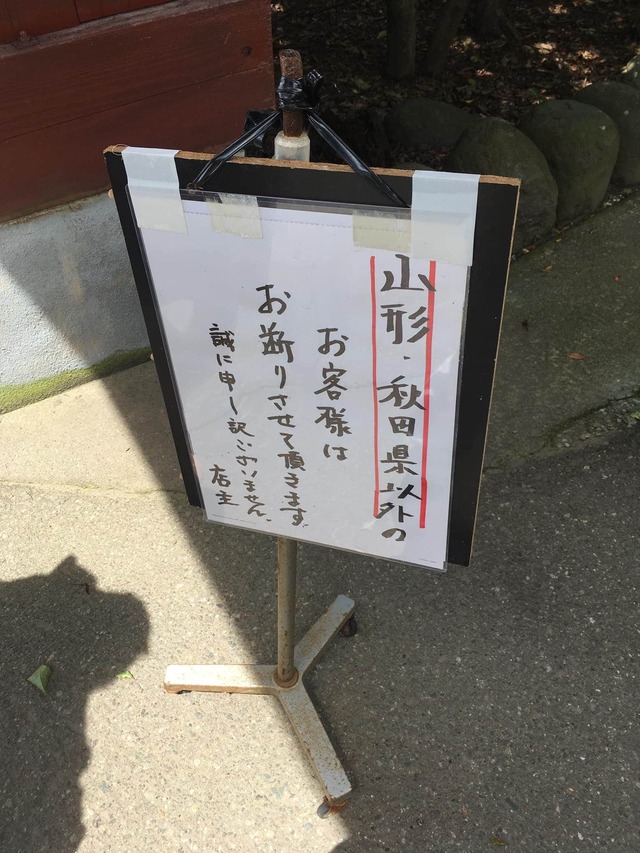 山形・秋田県以外の
お客様は
お断りさせて頂きます。
誠に申し訳ございません。
店主